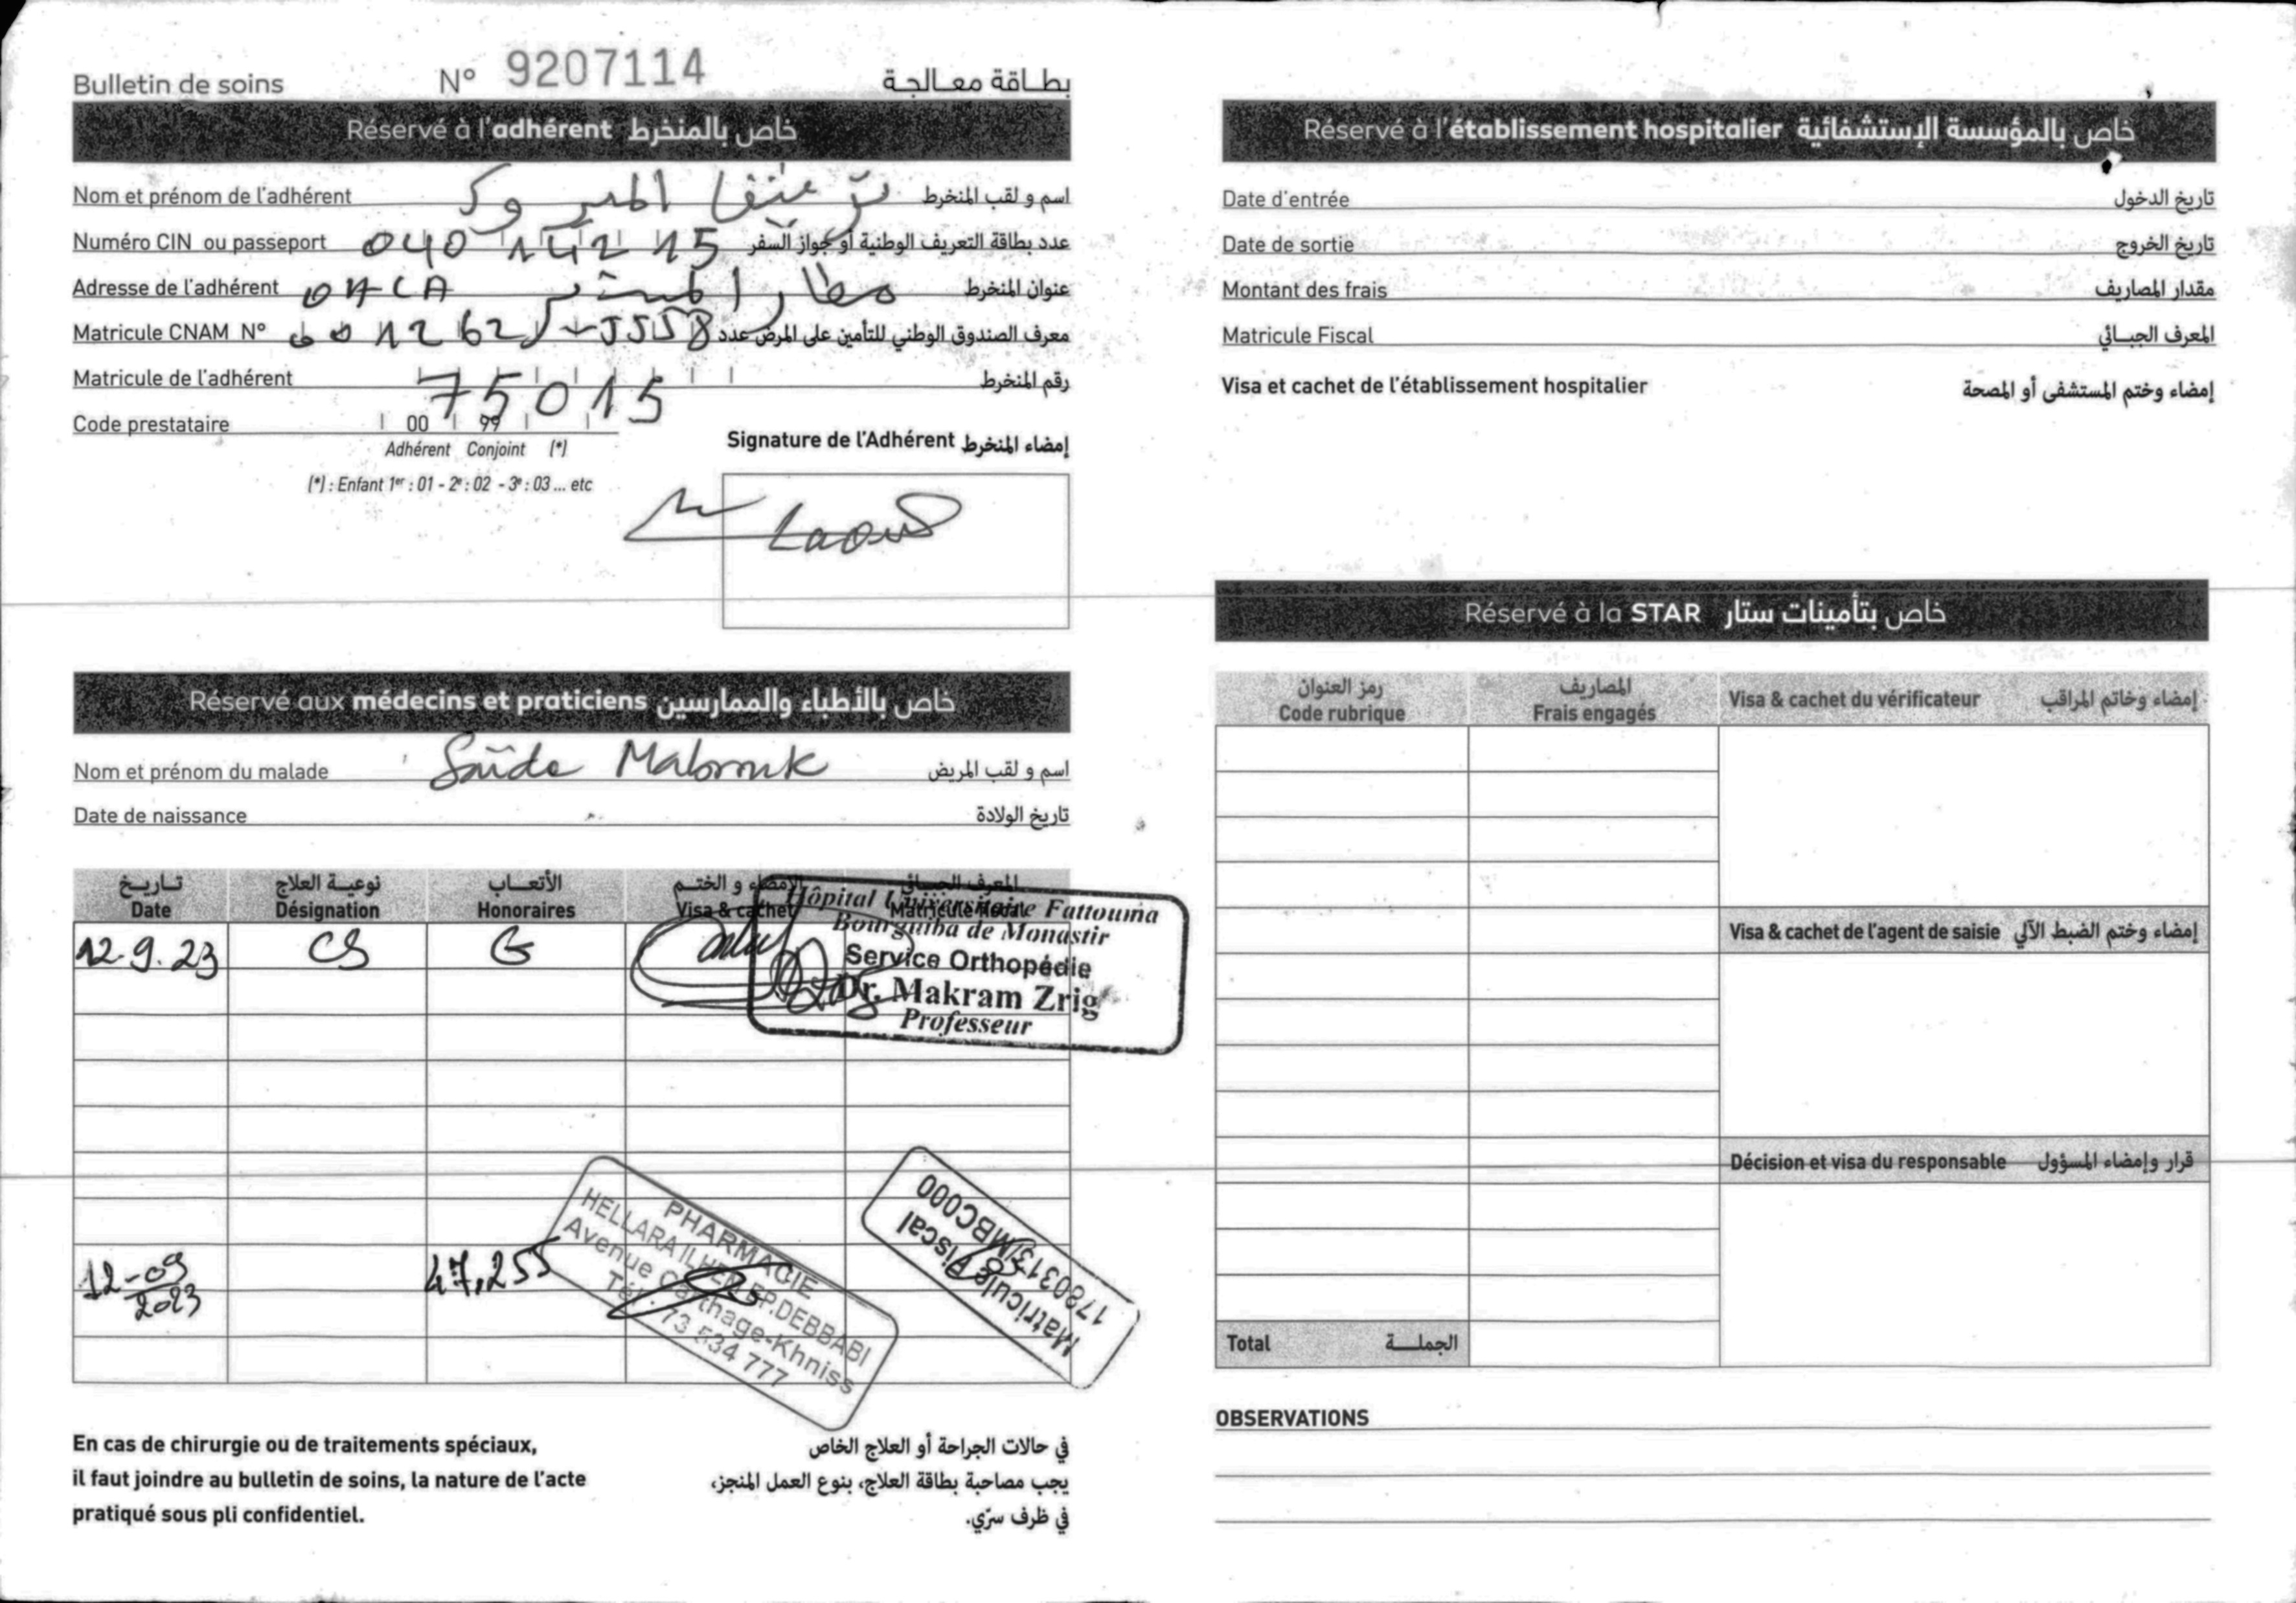 Bulletin de soins N° 9207114 بطاقة معالجة
Réservé à l'adhérent خاص بالمنخرط
Nom et prénom de l'adhérent المبروك اسم و لقب المنخرط
Numéro CIN ou passeport 04014215 عدد بطاقة التعريف الوطنية أو جواز السفر
Adresse de l'adhérent OACA مطار المنستير عنوان المنخرط
Matricule CNAM N° معرف الصندوق الوطني للتأمين على المرض عدد
Matricule de l'adhérent 75015 رقم المنخرط
Code prestataire 00 99
Adhérent Conjoint (*)
(*) : Enfant 1er : 01 - 2e : 02 - 3e : 03 ... etc
Signature de l'Adhérent إمضاء المنخرط
Réservé aux médecins et praticiens خاص بالأطباء والممارسين
Nom et prénom du malade Saïda Mabrouk اسم و لقب المريض
Date de naissance تاريخ الولادة
تاريخ نوعية العلاج الأتعاب الإمضاء و الختم المعرف الجبائي
Date Désignation Honoraires Visa & cachet Matricule fiscal
12.9.23 CS G
Hôpital Universitaire Fattouma
Bourguiba de Monastir
Service Orthopédie
Dr. Makram Zrig
Professeur
12-09 2023 47,255
PHARMACIE
HELLARA ILHEM EP.DEBBABI
Avenue Carthage-Khniss
Tél : 73 534 777
Matricule Fiscal
En cas de chirurgie ou de traitements spéciaux,
il faut joindre au bulletin de soins, la nature de l'acte
pratiqué sous pli confidentiel.
في حالات الجراحة أو العلاج الخاص
يجب مصاحبة بطاقة العلاج، بنوع العمل المنجز،
في ظرف سرّي.
Réservé à l'établissement hospitalier خاص بالمؤسسة الإستشفائية
Date d'entrée تاريخ الدخول
Date de sortie تاريخ الخروج
Montant des frais مقدار المصاريف
Matricule Fiscal المعرف الجبائي
Visa et cachet de l'établissement hospitalier إمضاء وختم المستشفى أو المصحة
Réservé à la STAR خاص بتأمينات ستار
رمز العنوان المصاريف
Code rubrique Frais engagés
Visa & cachet du vérificateur إمضاء وخاتم المراقب
Visa & cachet de l'agent de saisie إمضاء وختم الضبط الآلي
Décision et visa du responsable قرار وإمضاء المسؤول
Total الجملة
OBSERVATIONS